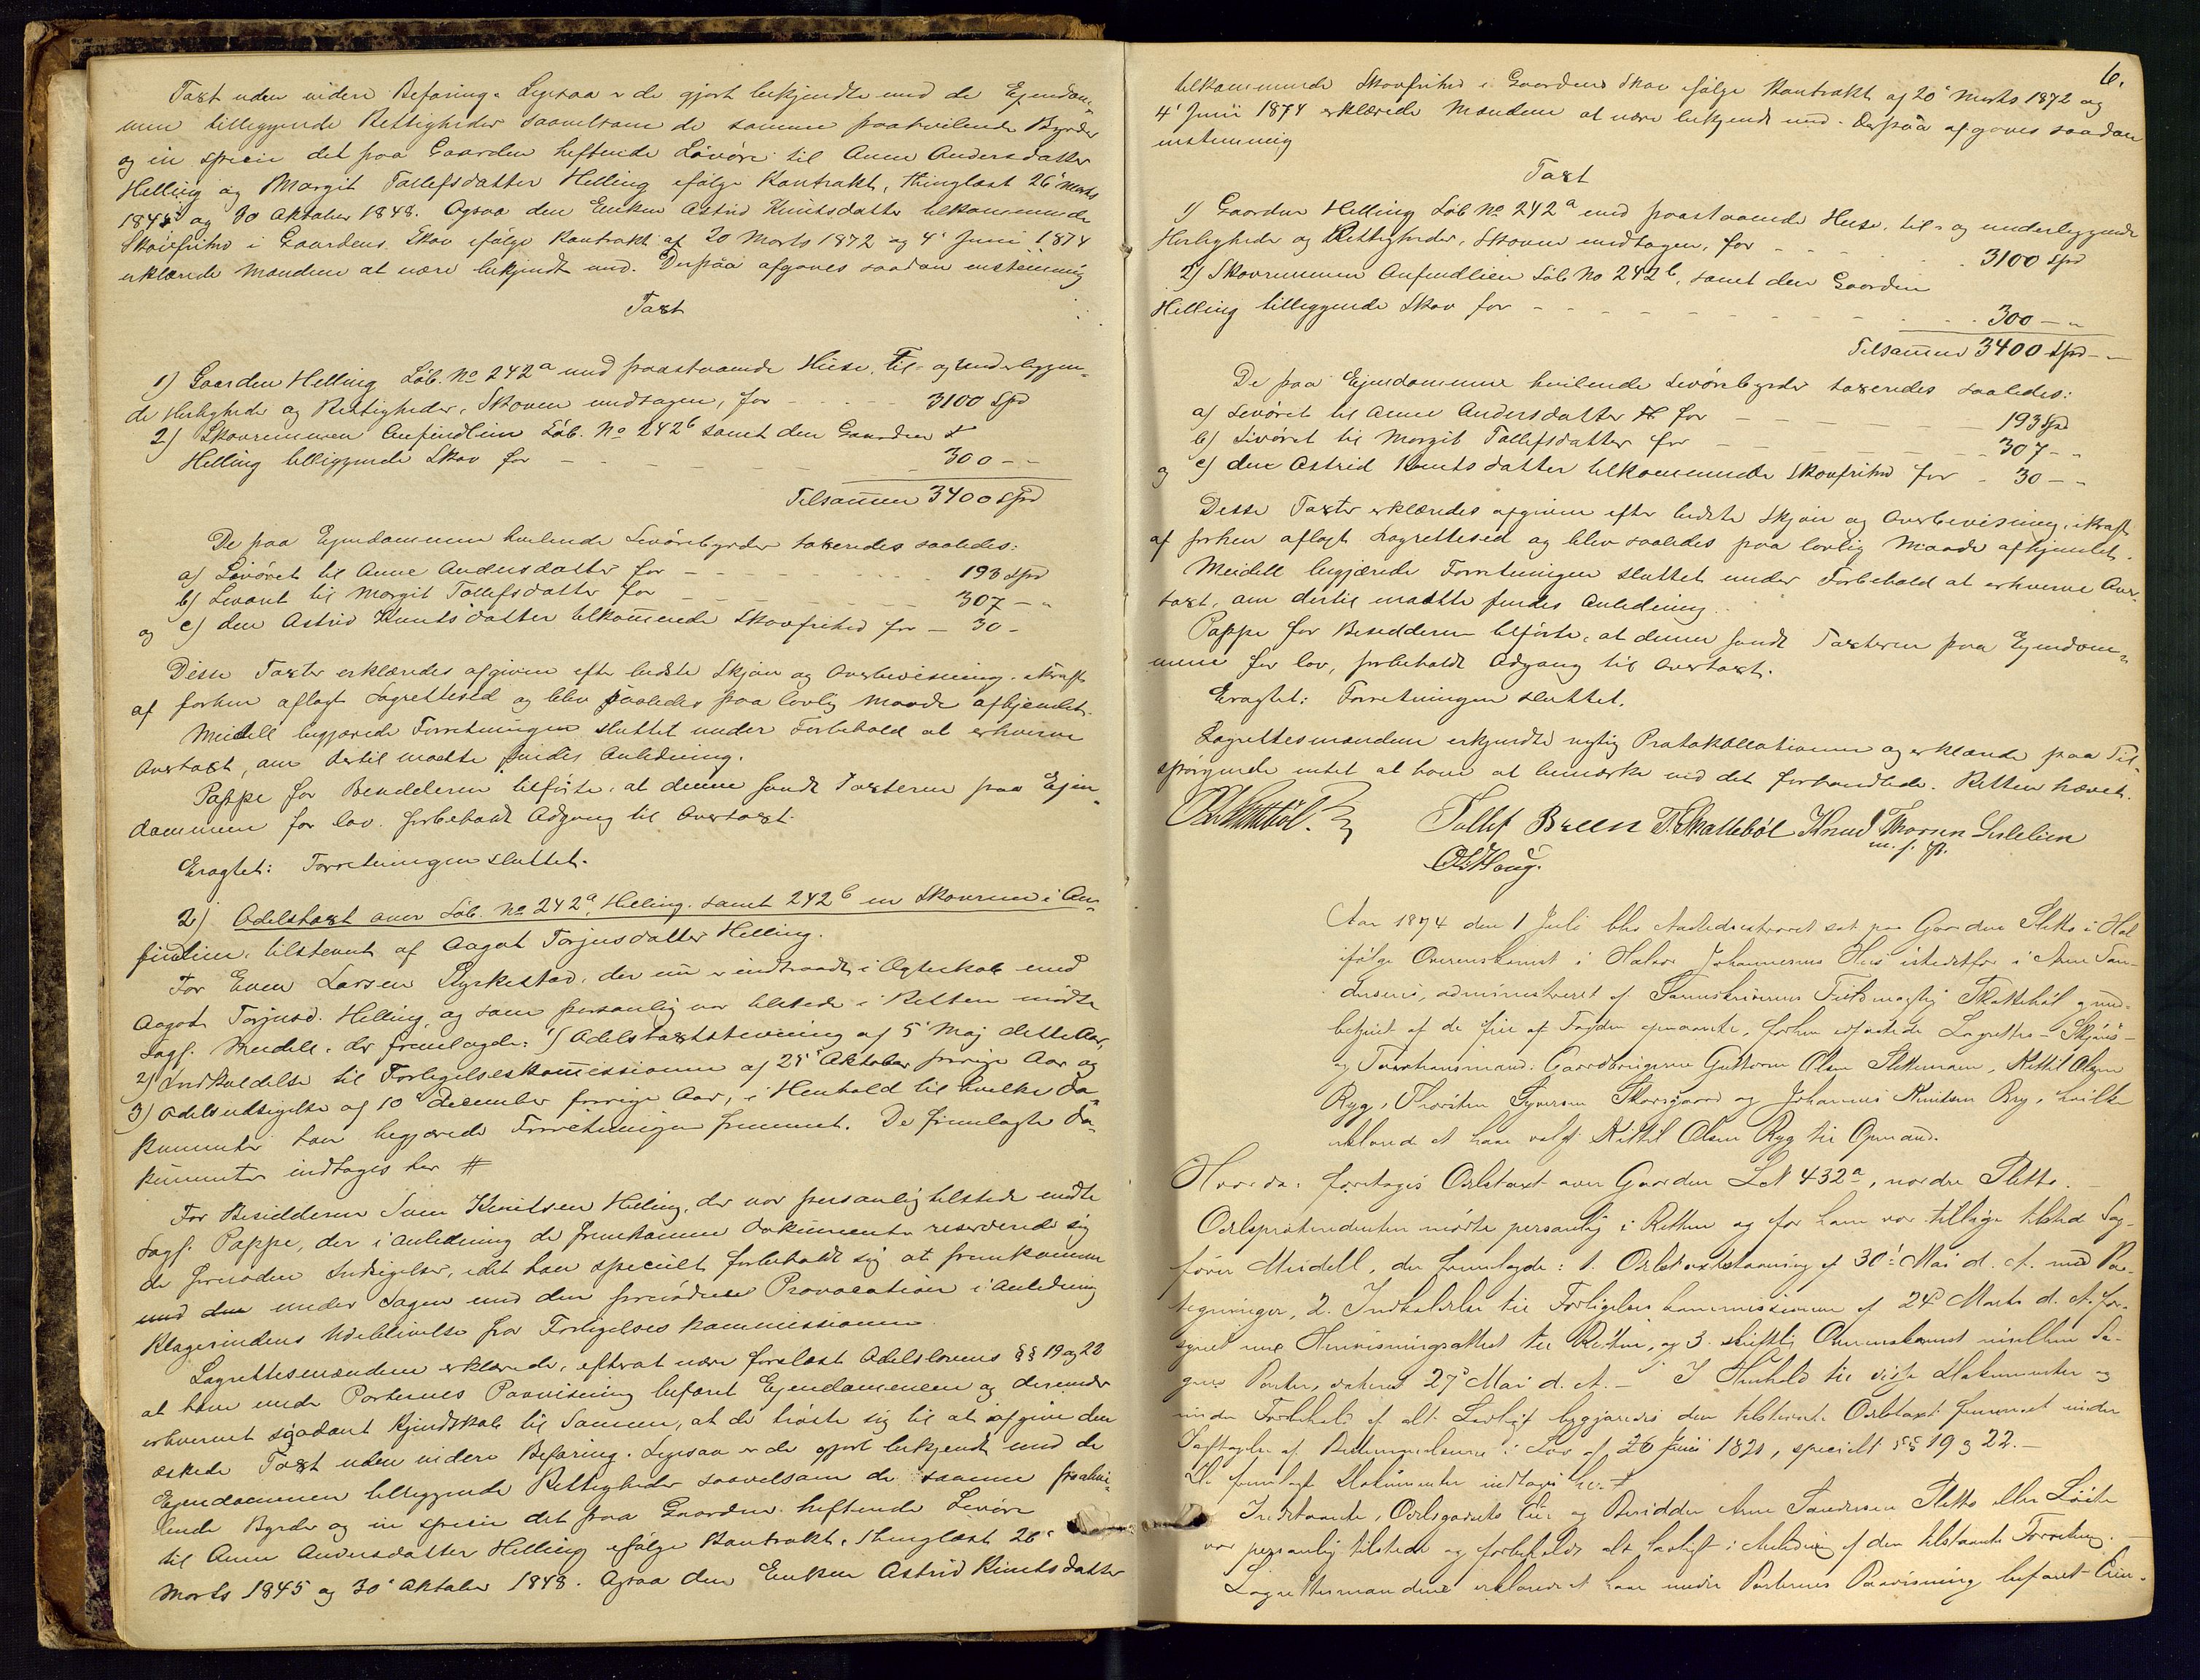 Taxt uden videre Befaring. Ligesaa er de gjort bekjendte med de Ejendom-
mene tilliggende Rettigheder saavelsom de samme paahvilende Byrder
og in specie det paa Gaarden heftende Livöre til Anne Andersdatter
Helling og Margit Tollefsdatter Helling ifølge Kontrakt, thinglæst 26' Marts
1845 og 30 Oktober 1848. Ogsaa den Enken Astrid Knutsdatter tilkommende
Skovfrihed i Gaardens Skov ifølge Kontrakt af 20 Marts 1872 og 4' Juni 1874
erklærede Mændene at være bekjendt med. Derpaa afgaves saadan enstemmig
Taxt
1) Gaarden Helling Löb. No 242a med paastaaende Huse, til- og underliggen-
de Herligheder og Rettigheder, Skoven undtagen, for - - - 3100 Spd
2) Skovremmen Anfindlien Löb. No 242b samt den Gaarden
Helling tilliggende Skov for - - - 300 - -
Tilsammen 3400 Spd
De paa Ejendommen hvilende Livörebyrder taxeredes saaledes:
a) Livöret til Anne Andersdatter for - - - 193 Spd
b) Livöret til Margit Tollefsdatter for - - - 307 - "
og c) den Astrid Knutsdatter tilkommende Skovfrihed for - 30 -
Disse Taxter erklæredes afgivne efter bedste Skjön og Overbevisning i Kraft
af forhen aflagt Lagretteseed og blev saaledes paa lovlig Maade afhjemlet.
Meidell begjærede Forretningen sluttet under Forbehold at erhverve
Overtaxt, om dertil maatte findes Anledning.
Pappe for Besidderen tilföiede, at denne fandt Taxterne paa Ejen-
dommen for lav, forbeholdt Adgang til Overtaxt.
Eragtet: Forretningen sluttet.
2) Odelstaxt over Löb. No 242a, Helling samt 242b en Skovrem i An-
findlien, tilstevnt af Aagot Torjusdatter Helling.
For Even Larsen Styrkestad, der nu er indtraadt i Ægteskab med
Aagot Torjusd. Helling, og som personlig var tilstede i Retten mödte
Sagf. Meidell, der fremlagde: 1) Odelstaxtstevning af 5' Maj dette Aar,
2) Indkaldelse til Forligelseskommissionen af 25' Oktober forrige Aar og
3) Odelsudsigelse af 10' December forrige Aar, i Henhold til hvilke Do-
kumenter han begjærede Forretningen fremmet. De fremlagte Do-
kumenter indtages her #
For Besidderen Sven Knutsen Helling, der var personlig tilstede mödte
Sagf. Pappe, der i Anledning de fremkomne Dokumenter reserverede sig
de fornödne Indsigelser, idet han specielt forbeholdt sig at fremkomme
med den under Sagen med den fornödne Provocation i Anledning
Klagerindens Udeblivelse fra Forligelseskommissionen.
Lagrettesmændene erklærede, efterat være forelæst Odelslovens §§ 19 og 22
at have under Parternes Paavisning befaret Ejendommene og derunder
erhvervet saadant Kjendskab til Sammen, at de tröste sig til at afgive den
æskede Taxt uden videre Befaring. Ligesaa er de gjort bekjendt med de
Ejendommen tilliggende Rettigheder saavelsom de samme paahvi-
lende Byrder og in specie det paa Gaarden heftende Livöre
til Anne Andersdatter Helling ifølge Kontrakt, thinglæst 26'
Marts 1845 og 30' Oktober 1848. Ogsaa den Enken Astrid Knutsdatter
6.
tilkommende Skovfrihed i Gaardens Skov ifølge Kontrakt af 20' Marts 1872 og
4' Juni 1874 erklærede Mændene at være bekjendt med. Derpaa afgaves saadan
enstemmig
Taxt
1) Gaarden Helling Löb No 242a med paastaaende Huse, til- og underliggende
Herligheder og Rettigheder, Skoven undtagen, for - - - 3100 Spd
2) Skovremmen Anfindlien Löb No 242b, samt den Gaarden
Helling tilliggende Skov for - - - 300 - "
Tilsammen 3400 Spd - -
De paa Ejendommene hvilende Livörebyrder taxeredes saaledes:
a) Livöret til Anne Andersdatter for - - - 193 Spd
b) Livöret til Margit Tollefsdatter for - - - 307 - "
og c) den Astrid Knutsdatter tilkommende Skovfrihed for - 30 - "
Disse Taxter erklæredes afgivne efter bedste Skjön og Overbevisning, i Kraft
af forhen aflagt Lagretteseed og blev saaledes paa lovlig Maade afhjemlet.
Meidell begjærede Forretningen sluttet under Forbehold at erhverve Over-
taxt, om dertil maatte findes Anledning.
Pappe for Besidderen tilförte, at denne fandt Taxterne paa Ejendom-
mene for lav, forbeholdt Adgang til Overtaxt.
Eragtet: Forretningen sluttet.
Lagrettesmændene erkjendte rigtig Protokollationen og erklærede paa Til-
spörgende intet at have at bemærke ved det forhandlede. Retten hævet.
Tollef Breen T. Skattebøl Knud Thoresen Lislelien
m. f. P.
O. Haug.
Aar 1874 den 1 Juli blev Aastedsretten sat paa Gaarden Sletto i Hol
ifølge Overenskomst i Halvor Johannesens Hus istedetfor i Arne San-
dersens, administreret af Sorenskriverens Fuldmægtig Skattebøl og med-
betjent af de fire af Fogden opnævnte, forhen edfæstede Lagrettes- Skjöns-
og Taxationsmænd: Gaardbrugerne Guttorm Olsen Slettemoen, Kittil Olsen
Ryg, Thorsten Syversen Skarsgaard og Johannes Knudsen Bry, hvilke
erklærede at have valgt Kittil Olsen Ryg til Opmand.
Hvorda: foretoges Odelstaxt over Gaarden LN 432a, nordre Sletto.
Odelsprætendenten mödte personlig i Retten og for ham var tillige tilsted Sag-
förer Meidell, der fremlagde: 1. Odelstaxtstævning af 30' Mai d. A. med Paa-
tegninger, 2. Indkaldelse til Forligelseskommissionen af 24' Marts d. A. for-
synet med Henvisningsattest til Retten, og 3. skriftlig Overenskomst imellem Sa-
gens Parter, dateret 27' Mai d. A. - I Henhold til disse Dokumenter og
under Forbehold af alt Lovligt begjæredes den tilstevnte Odelstaxt fremmet under
Iagttagelse af Bestemmelserne i Lov af 26 Juni 1821, specielt §§ 19 og 22. -
De fremlagte Dokumenter indtages her. #
Indstævnte, Odelsgodsets Eier og Besidder Arne Sandersen Sletto eller Löite
var personlig tilstede og forbeholdt alt Lovligt i Anledning af den tilstævnte Forretning. -
Lagrettesmændene erklærede at have under Parternes Paavisning befaret Eien-